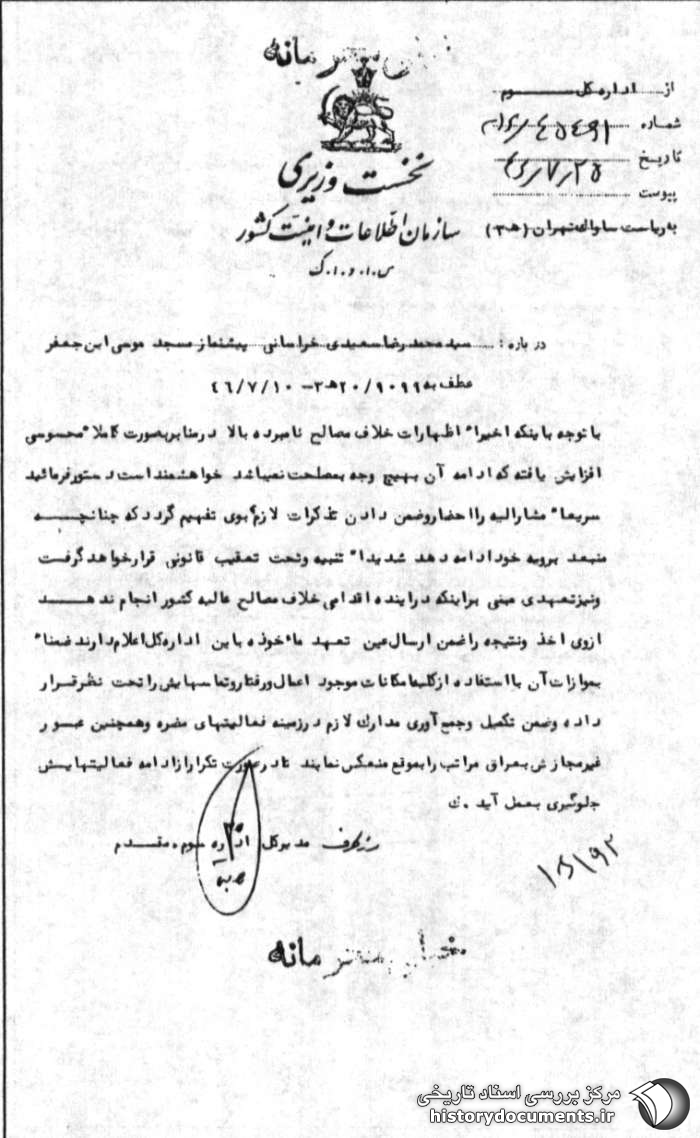 مانه
از اداره کل سوم
شماره
تاریخ
پیوست
نخست وزیری
سازمان اطلاعات و امنیت کشور
س.ا.و.ا.ک
به ریاست ساواک تهران (هـ ۳)
درباره: سید محمد رضا سعیدی خراسانی پیشنماز مسجد موسی ابن جعفر
عطف به ۲۰/۹۰۹۹هـ۳-۴۶/۷/۱۰
با توجه باینکه اخیراً اظهارات خلاف مصالح نامبرده بالا در منابر بصورت کاملاً محسوسی
افزایش یافته که ادامه آن بهیچ وجه بمصلحت نمیباشد خواهشمند است دستور فرمائید
سریعاً مشارالیه را احضار و ضمن دادن تذکرات لازم بوی تفهیم گردد که چنانچه
منبعد برویه خود ادامه دهد شدیداً تنبیه و تحت تعقیب قانونی قرار خواهد گرفت
و نیز تعهدی مبنی براینکه در آینده اقدامی خلاف مصالح عالیه کشور انجام ندهد
از وی اخذ و نتیجه را ضمن ارسال عین تعهد مأخوذه باین اداره کل اعلام دارند ضمناً
بموازات آن با استفاده از کلیه امکانات موجود اعمال و رفتار و تماسهایش را تحت نظر قرار
داده و ضمن تکمیل و جمع آوری مدارک لازم در زمینه فعالیتهای مضره و همچنین عبور
غیرمجازش بعراق مراتب را بموقع منعکس نمایند تا در صورت تکرار از ادامه فعالیتهایش
جلوگیری بعمل آید. ک
مدیر کل اداره سوم. مقدم
مانه
مرکز بررسی اسناد تاریخی
historydocuments.ir